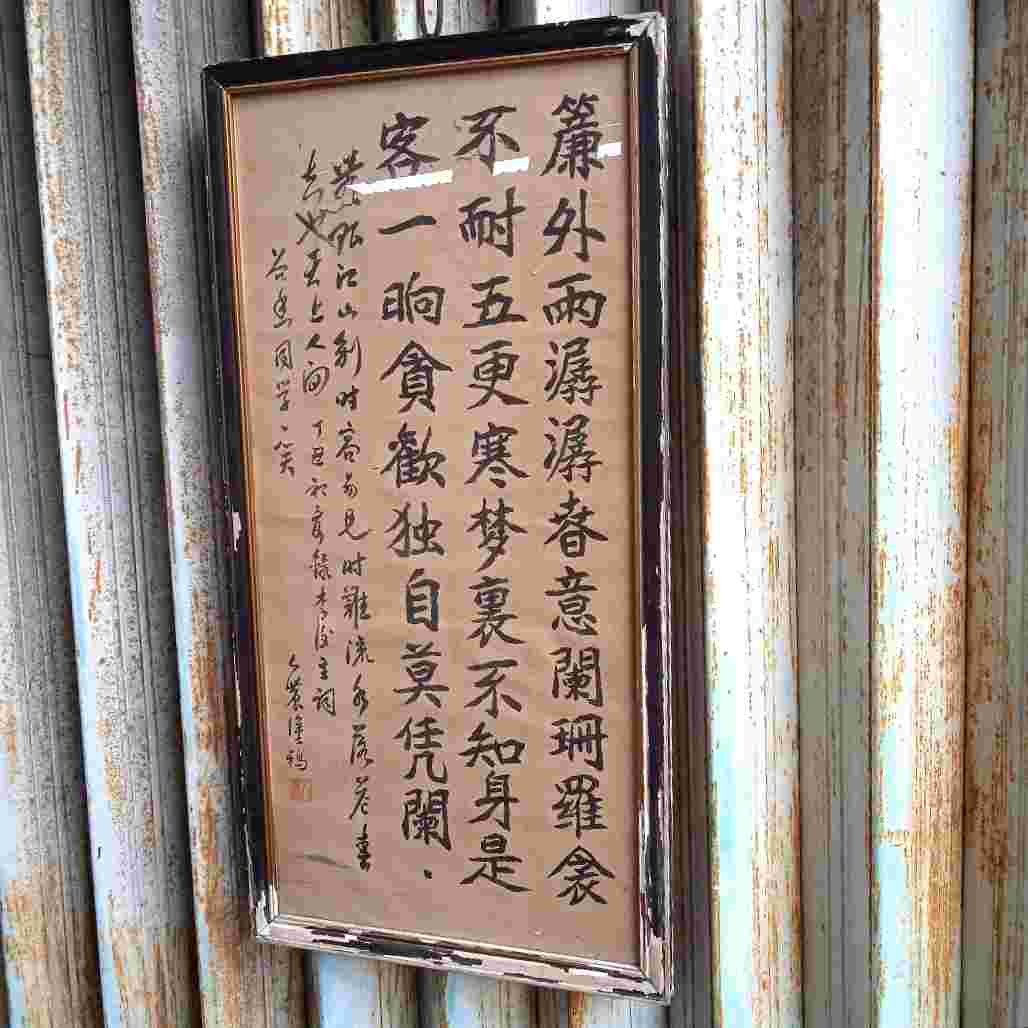 簾外雨潺潺春意闌珊羅衾
不耐五更寒梦裏不知身是
客一晌貪歡独自莫凭闌、
無限江山别时容易見时難流水落花春
去也天上人间 丁丑初夏録李後主詞
同学一笑